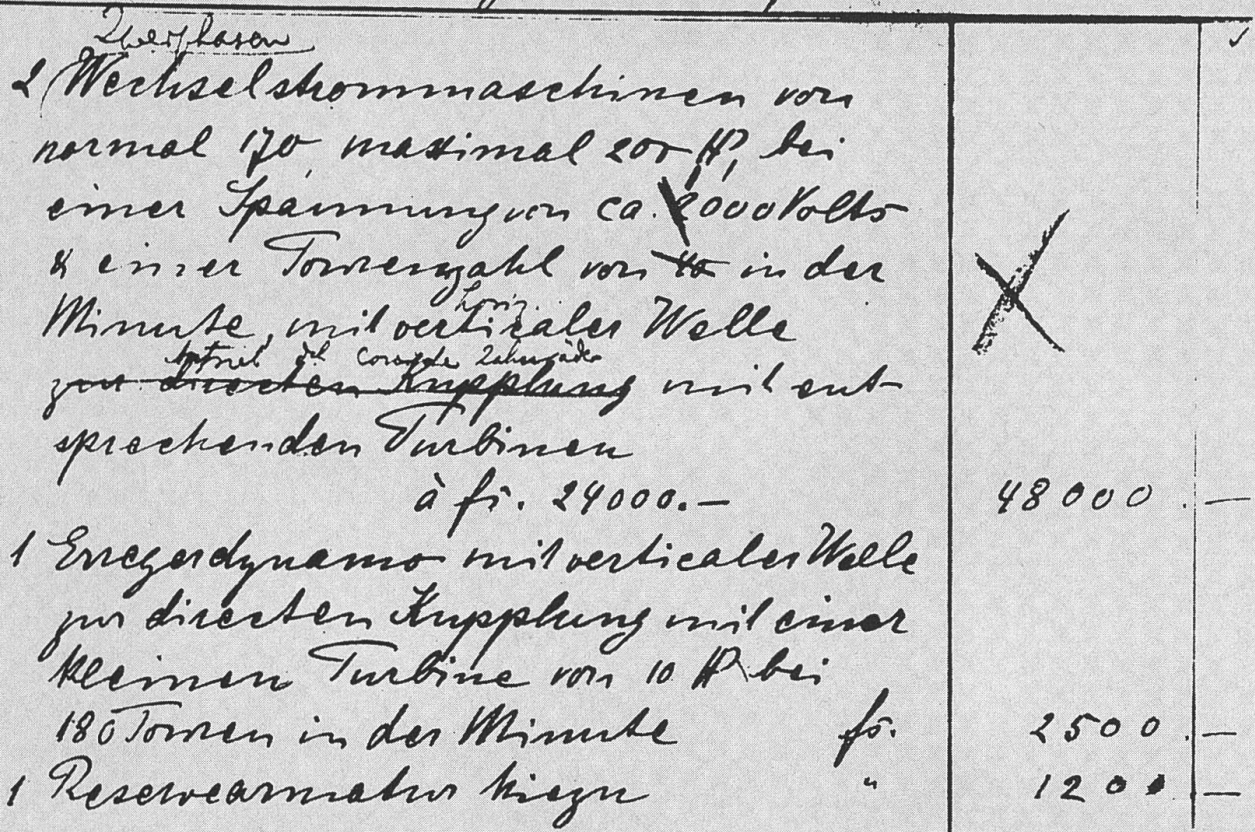 Zweiphasen
2 Wechselstrommaschinen von
normal 170 maximal 200 HP, bei
einer Spannung von ca. 2000 Volts
& einer Tourenzahl von in der
Minute, mit verticaler Welle
horiz.
Antrieb conische Zahnräder
zur directen Kupplung mit ent-
sprechenden Turbinen
à frs. 24000.— 48000.—
1 Erregerdynamo mit verticaler Welle
zur directen Kupplung mit einer
kleinen Turbine von 10 HP bei
180 Touren in der Minute frs. 2500.—
1 Reservearmatur hiezu " 1200.—